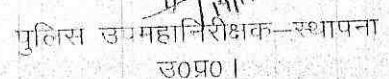 पुलिस उपमहानिरीक्षक–स्थापना
उ०प्र०।